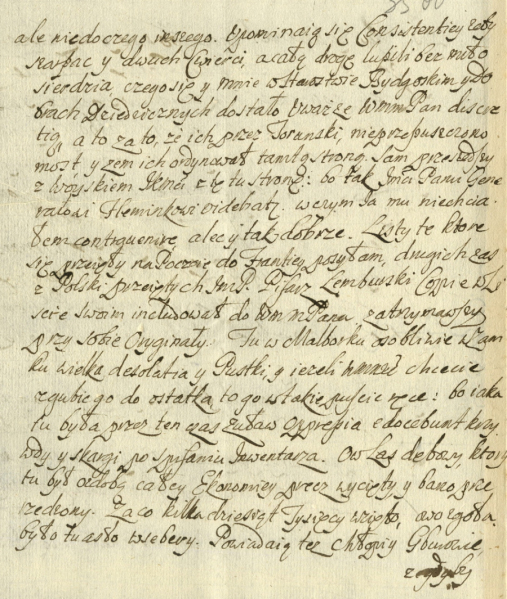 ale niedoczego inszego. Upominaią się Consistentiey żeby
y dwuch Cwierci, a całą drogę łupili bez miło
sierdzia czego się y mnie w Starostwie Bydgoskim y Do
brach Dziedzicznych dostało Uważże WmmPan discre
tią, a to za to, że ich przez Toruński, nieprzepuszczono
most y żem ich ordynował tamtą stroną. Sam przeszedszy
z Woyskiem IKMci z tę tu stronę: bo tak Imci Panu Gene
rałowi Heminkowi videbatur. w czym Ia mu niechcia
łem contravenire, ale y tak dobrze. Listy te ktore
się przeięły na Poczcie do Franciey posyłam, drugich zaś
z Polski przeiętych ImP. Pisarz Lemburski Copie w Li
scie swoim includował do WmmPana zatrzymawszy
przy sobie Originały. Tu w Malborku osobliwie w Zam
ku wielka desolatia y Pustki, y ieżeli chcecie
zgubić go do ostatka to go w takie puście ręce: bo iaka
tu była przez ten czas Żuław oppressia edocebunt krzy
wdy y skargi po spisaniu Inwentarza. Ow Las dębowy, ktory
tu był ozdobą całey Ekonomiey precz wycięty y bano prze
rzedzony. Za co kilkadziesiąt Tysięcy wzięto, awozgoła
było tu asło wsebery. Powiadaią też chłopi y Gburowie,
z gdyby